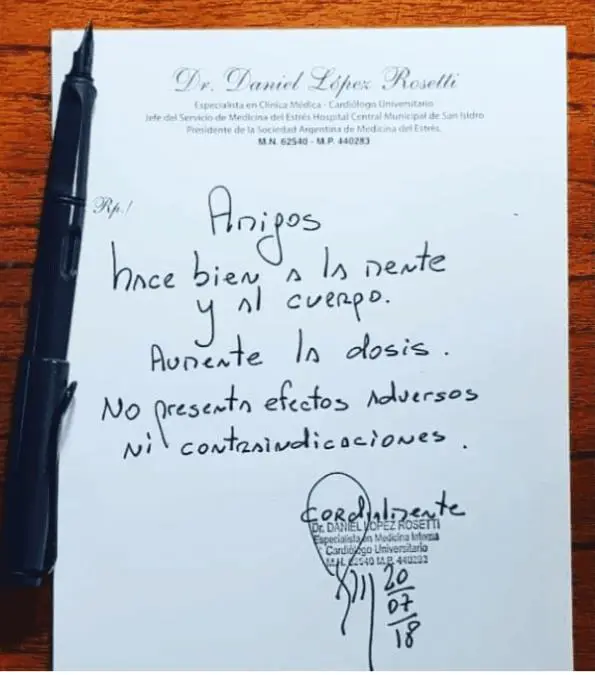 Dr. Daniel López Rosetti
Especialista en Clínica Médica - Cardiólogo Universitario
Jefe del Servicio de Medicina del Estrés Hospital Central Municipal de San Isidro
Presidente de la Sociedad Argentina de Medicina del Estrés.
M.N. 62540 - M.P. 440283
Rp./
Amigos
hace bien a la mente
y al cuerpo.
Aumente la dosis.
No presenta efectos adversos
Ni contraindicaciones.
Cordialmente
Dr. DANIEL LOPEZ ROSETTI
Especialista en Medicina Interna
Cardiólogo Universitario
M.N. 62540 M.P. 440283
20
07
18